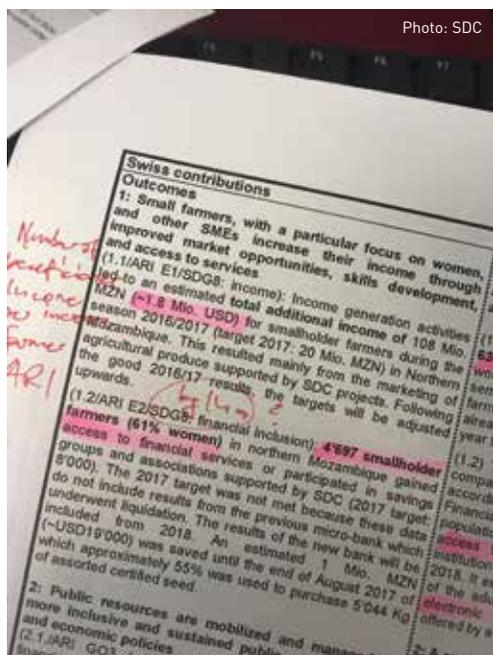 Photo: SDC
Swiss contributions
Outcomes
1: Small farmers, with a particular focus on women,
and other SMEs increase their income through
improved market opportunities, skills development,
and access to services
(1.1/ARI E1/SDG8: income): Income generation activities
led to an estimated total additional income of 108 Mio.
MZN (~1.8 Mio. USD) for smallholder farmers during the
season 2016/2017 (target 2017: 20 Mio. MZN) in Northern
Mozambique. This resulted mainly from the marketing of
agricultural produce supported by SDC projects. Following
the good 2016/17 results, the targets will be adjusted
upwards.
(1.2/ARI E2/SDG8: financial inclusion): 4'697 smallholder
farmers (61% women) in northern Mozambique gained
access to financial services or participated in savings
groups and associations supported by SDC (2017 target:
8'000). The 2017 target was not met because these data
do not include results from the previous micro-bank which
underwent liquidation. The results of the new bank will be
included from 2018. An estimated 1 Mio. MZN
(~USD19'000) was saved until the end of August 2017 of
which approximately 55% was used to purchase 5'044 Kg
of assorted certified seed.
2: Public resources are mobilized and
more inclusive and sustained
and economic policies
(2.1./ARI GO3
Number of
Income
Farmer
ARI
(1.2)
access
2018. It
of the
electronic
offered by a